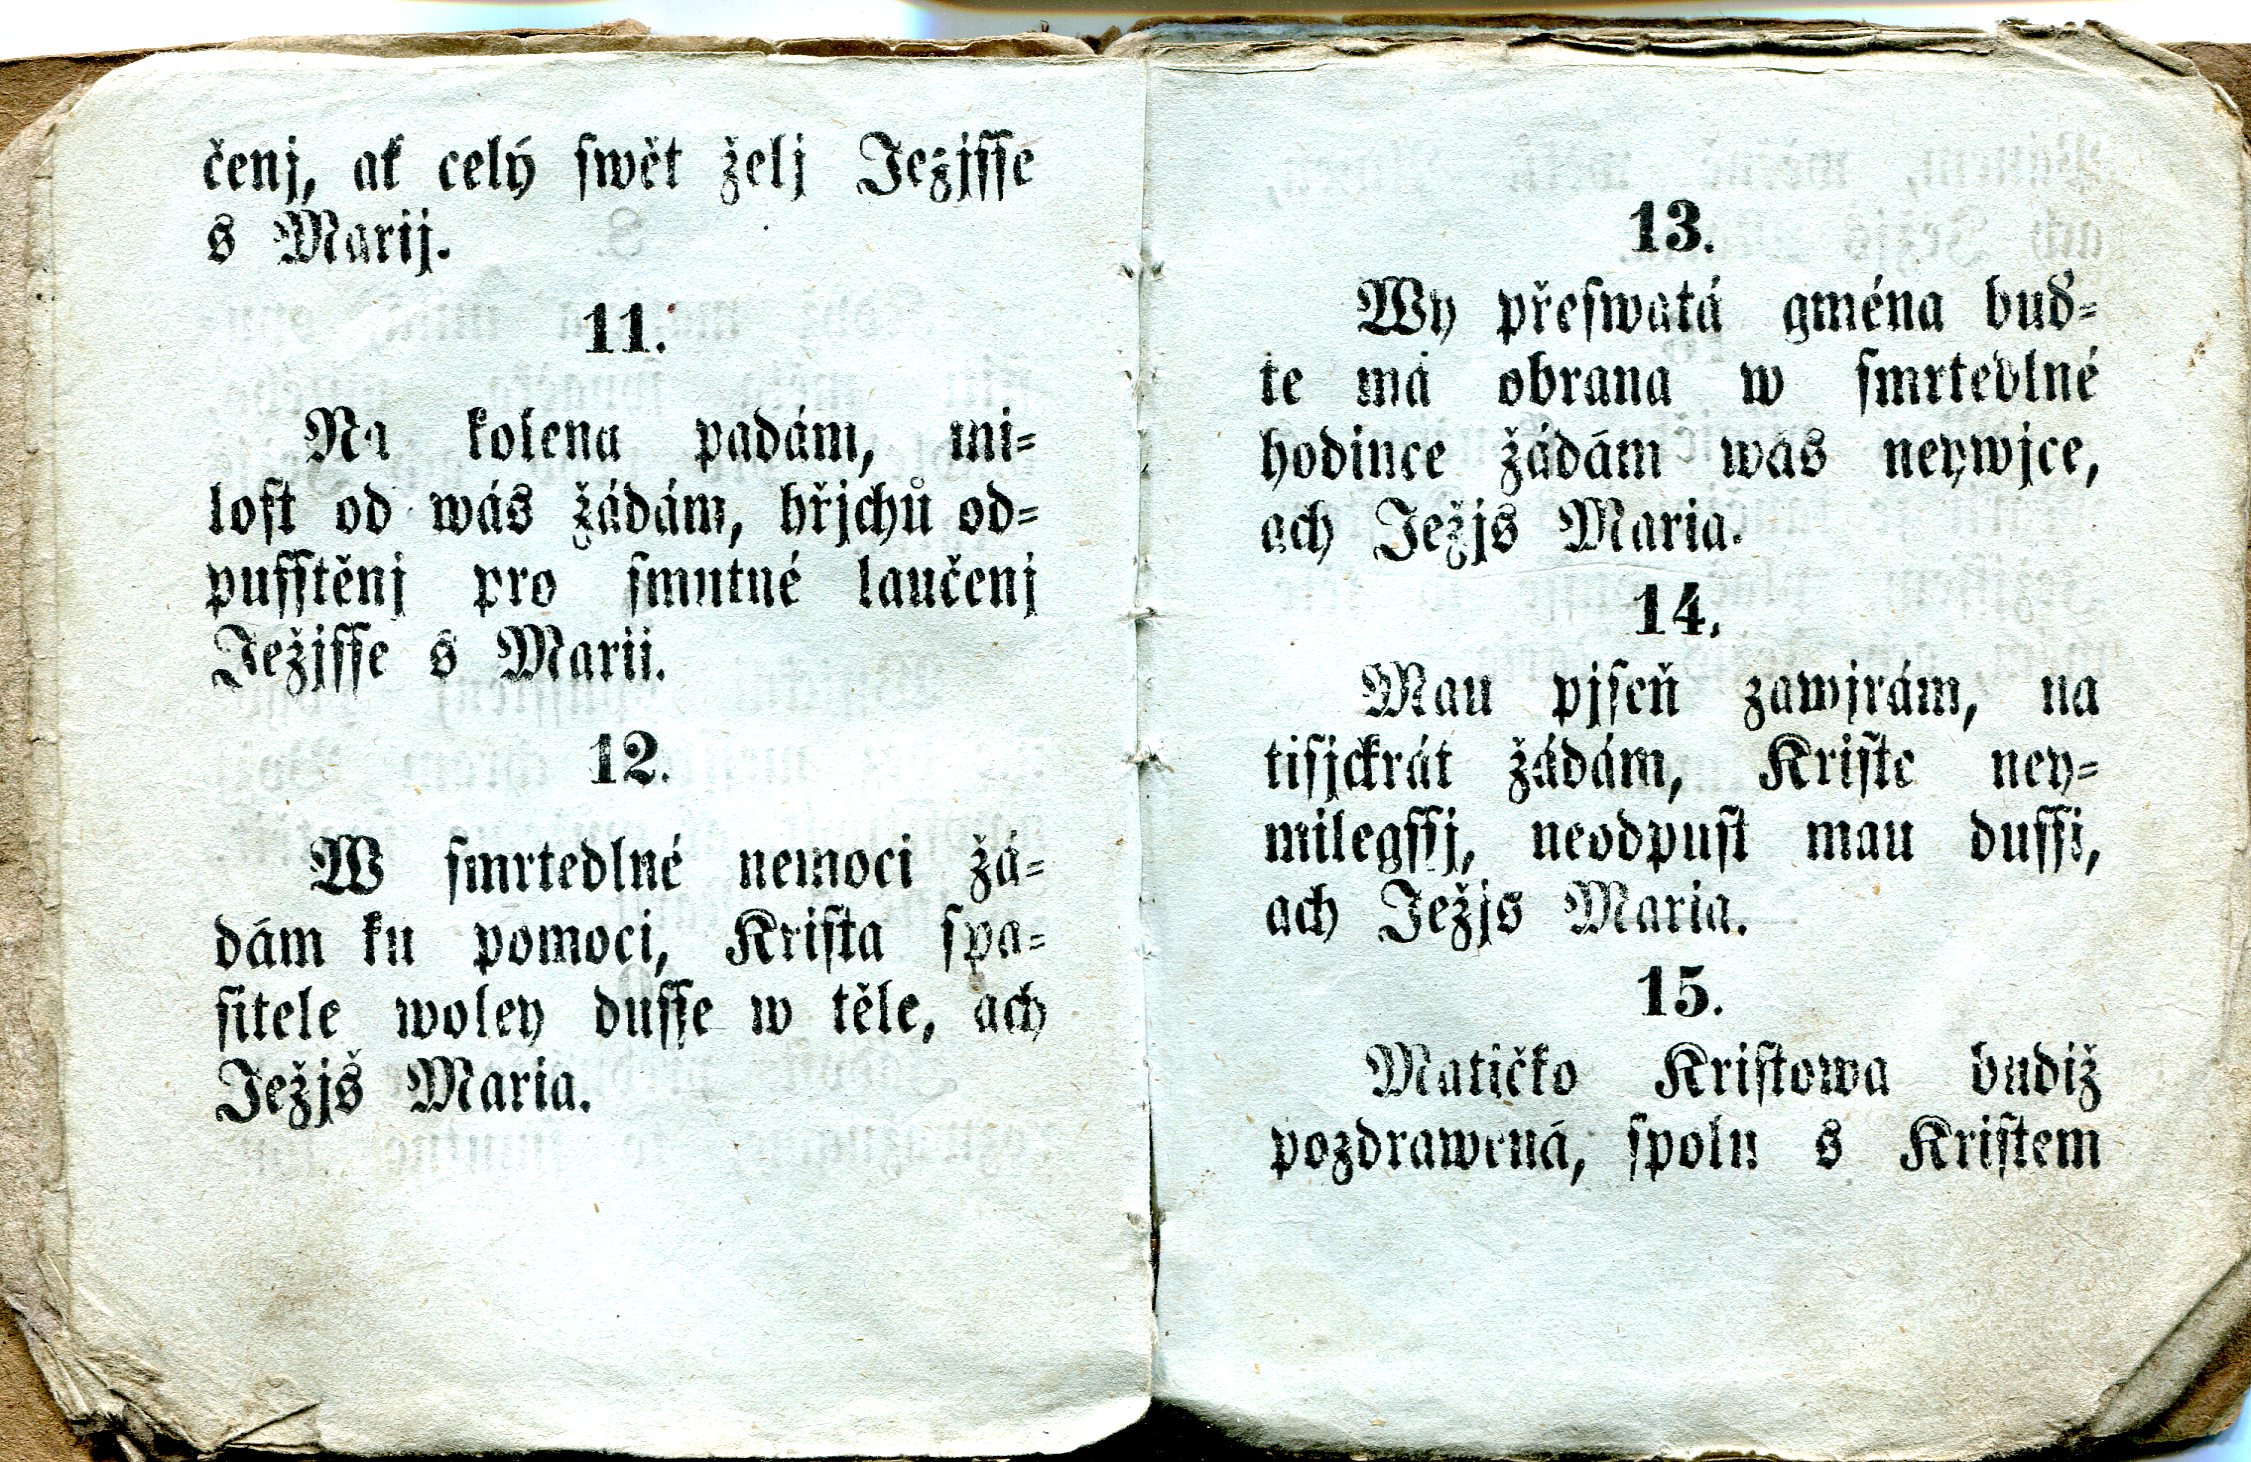 čenj, ak celý swět želj Ježjsse
s Marij.
11.
Na kolena padám, mi=
lost od wás žádám, hřjchů od=
pusstěnj pro smutné laučenj
Ježjsse s Marii.
12.
W smrtedlné nemoci žá=
dám ku pomoci, Krista spa=
sitele woley dusse w těle, ach
Ježjš Maria.
13.
Wy přeswatá gména buď=
te má obrana w smrtedlné
hodince žádám wás neywjce,
ach Ježjs Maria.
14.
Mau pjseň zawjrám, na
tisjckrát žádám, Kriste ney=
milegssj, neodpust mau dussi,
ach Ježjs Maria.
15.
Matičko Kristowa budiž
pozdrawená, spolu s Kristem